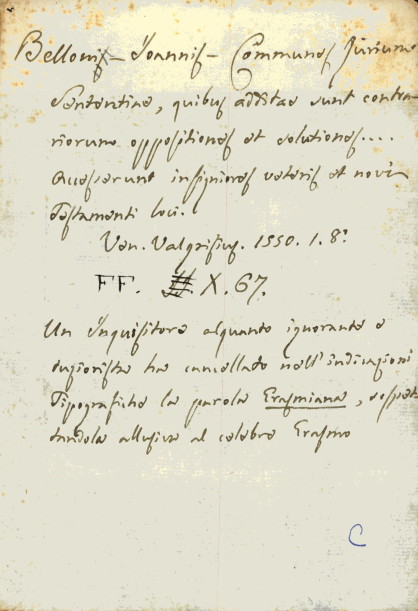 Bellonis - Joannis - Communes Jurium
Sententiae, quibus additae sunt contra-
riorum oppositiones et solutiones....
Accesserunt insigniores veteris et novi
Testamenti loci.
Ven. Valgrisius. 1550. 1. 8º
FF. X. 67.
Un Inquisitore alquanto ignorante e
ha cancellato nell' indicazioni
Tipografiche la parola Erasmiana, sospet
tandola allusiva al celebre Erasmo
C